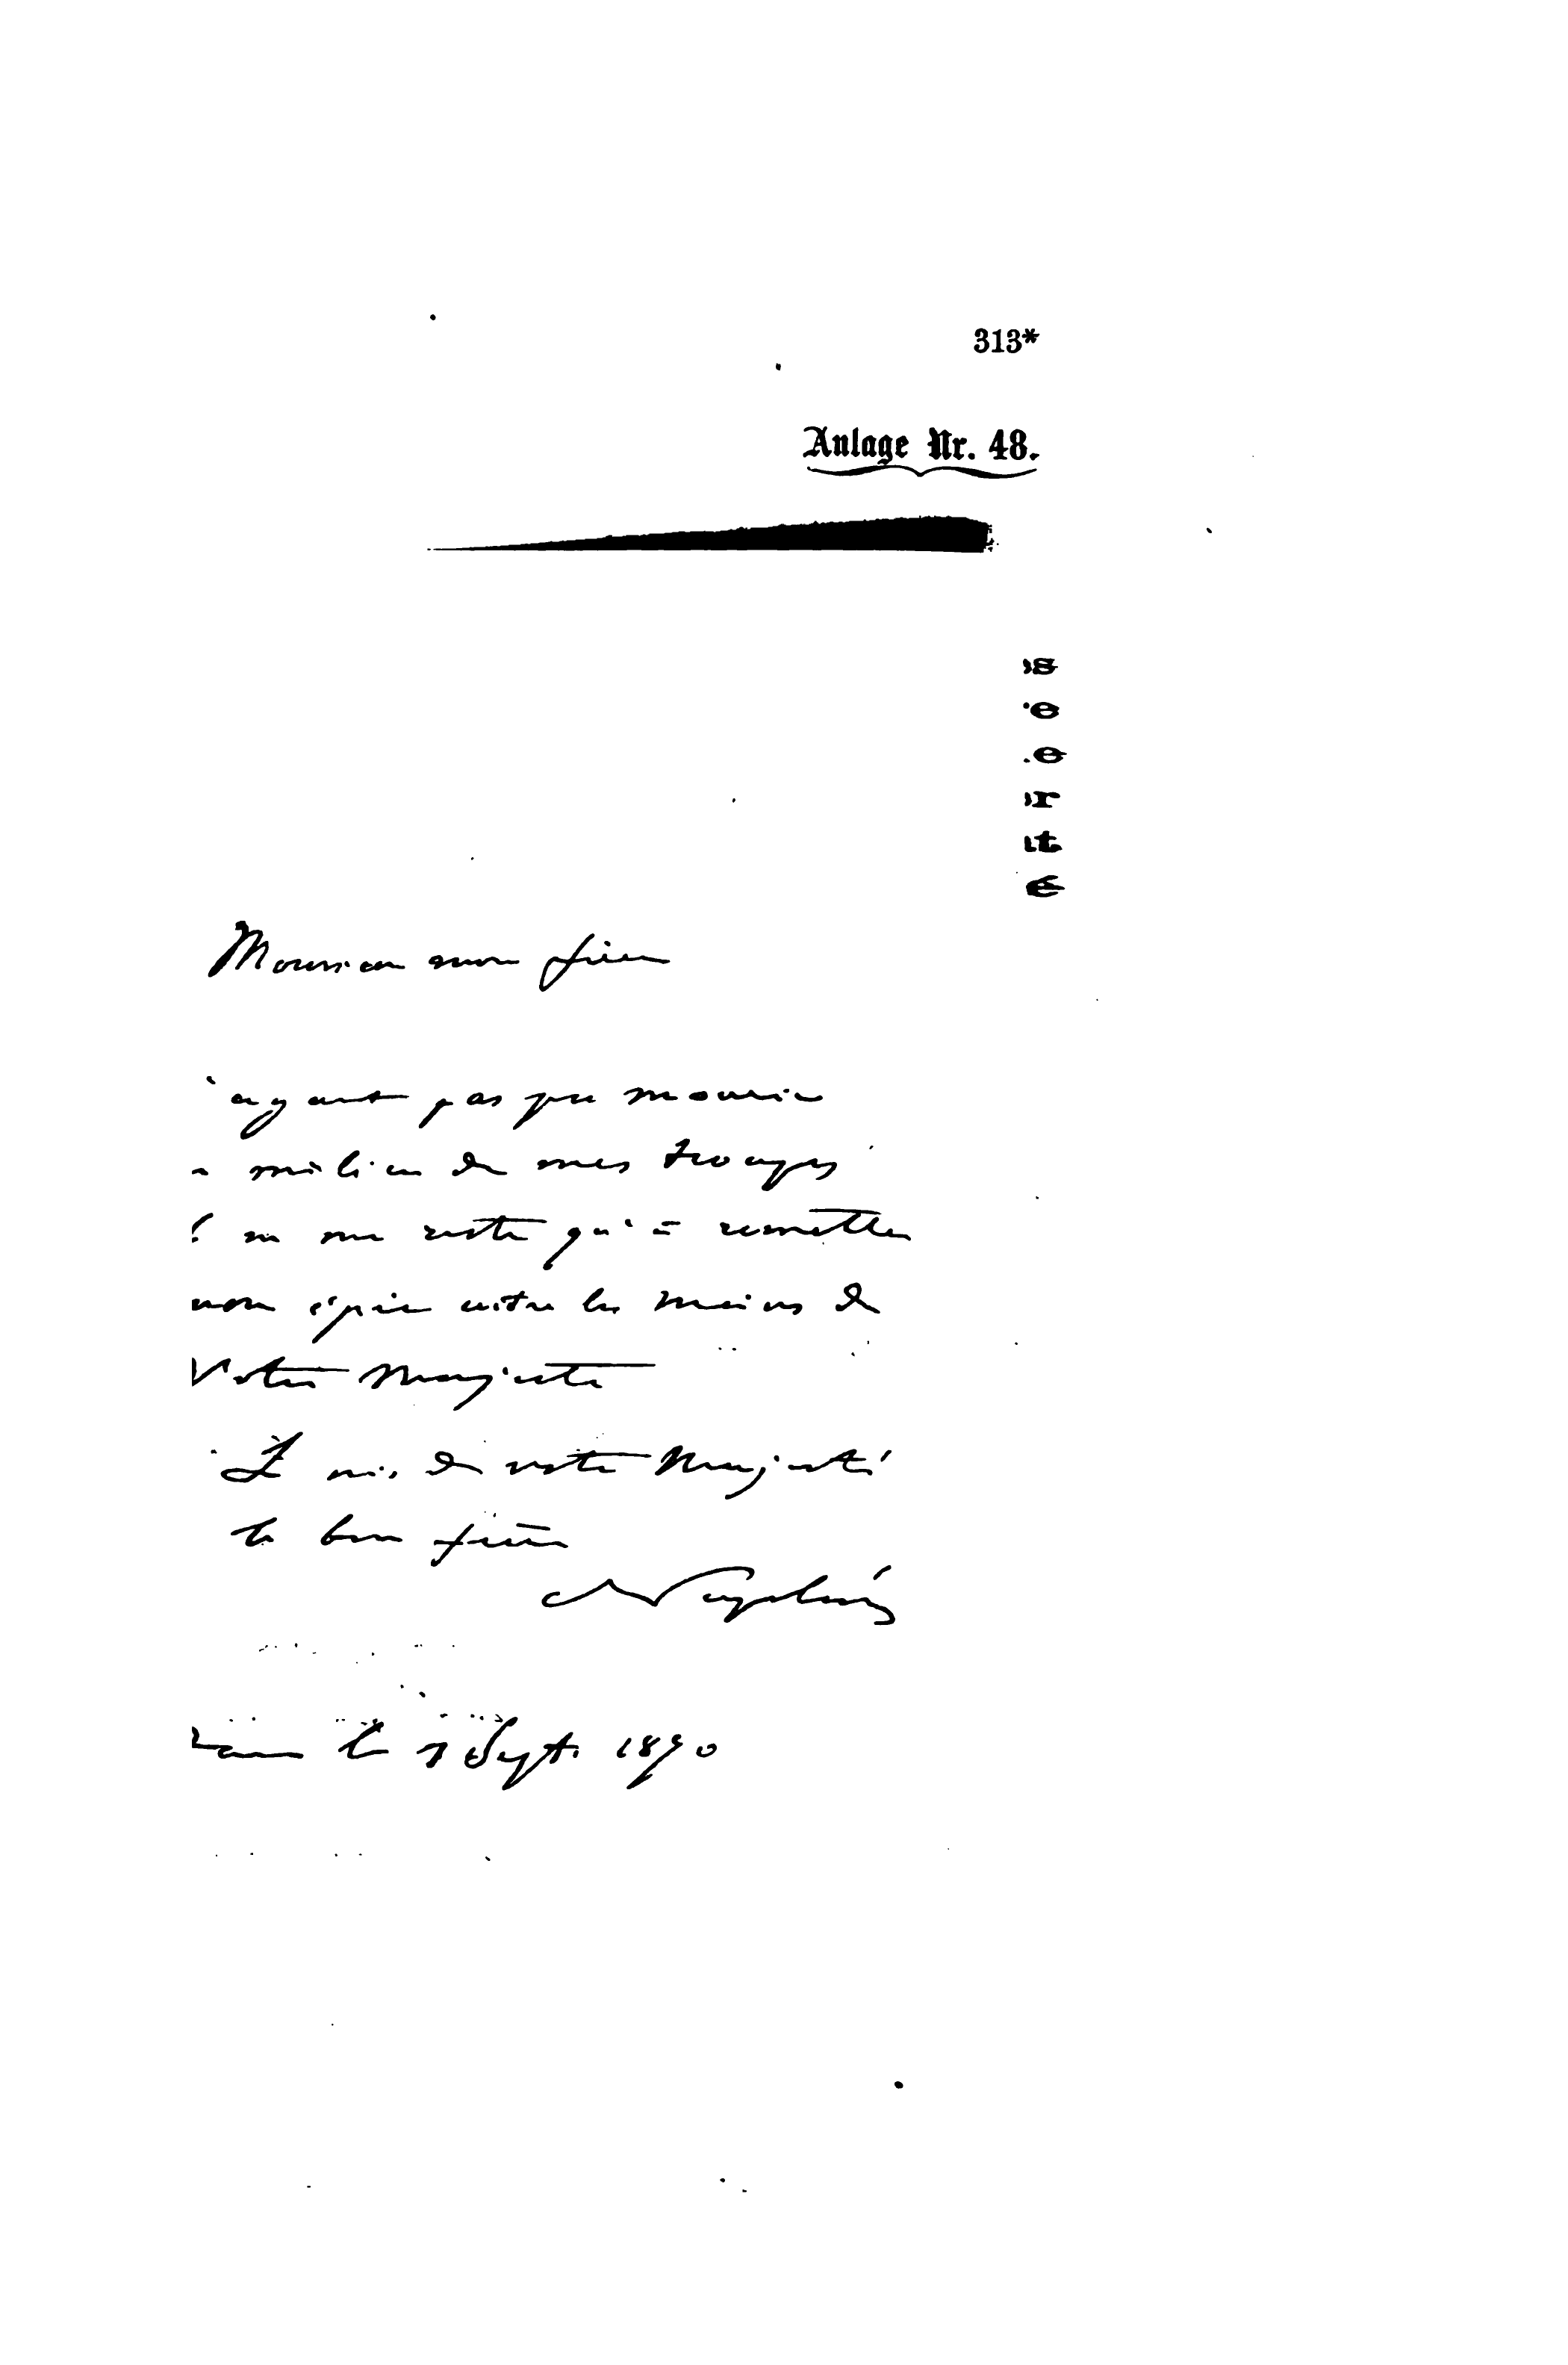 313*
Anlage Nr. 48.
s
e
e
r
t
é
Monsieur mon frère
ayant pas pu mourir
milieu de mes troupes
ne me reste qu'à remettre
mon épée entre les mains de
Votre Majesté
Je suis de votre Majesté
le bon frère
Napoléon
le 1 Sept. 1870